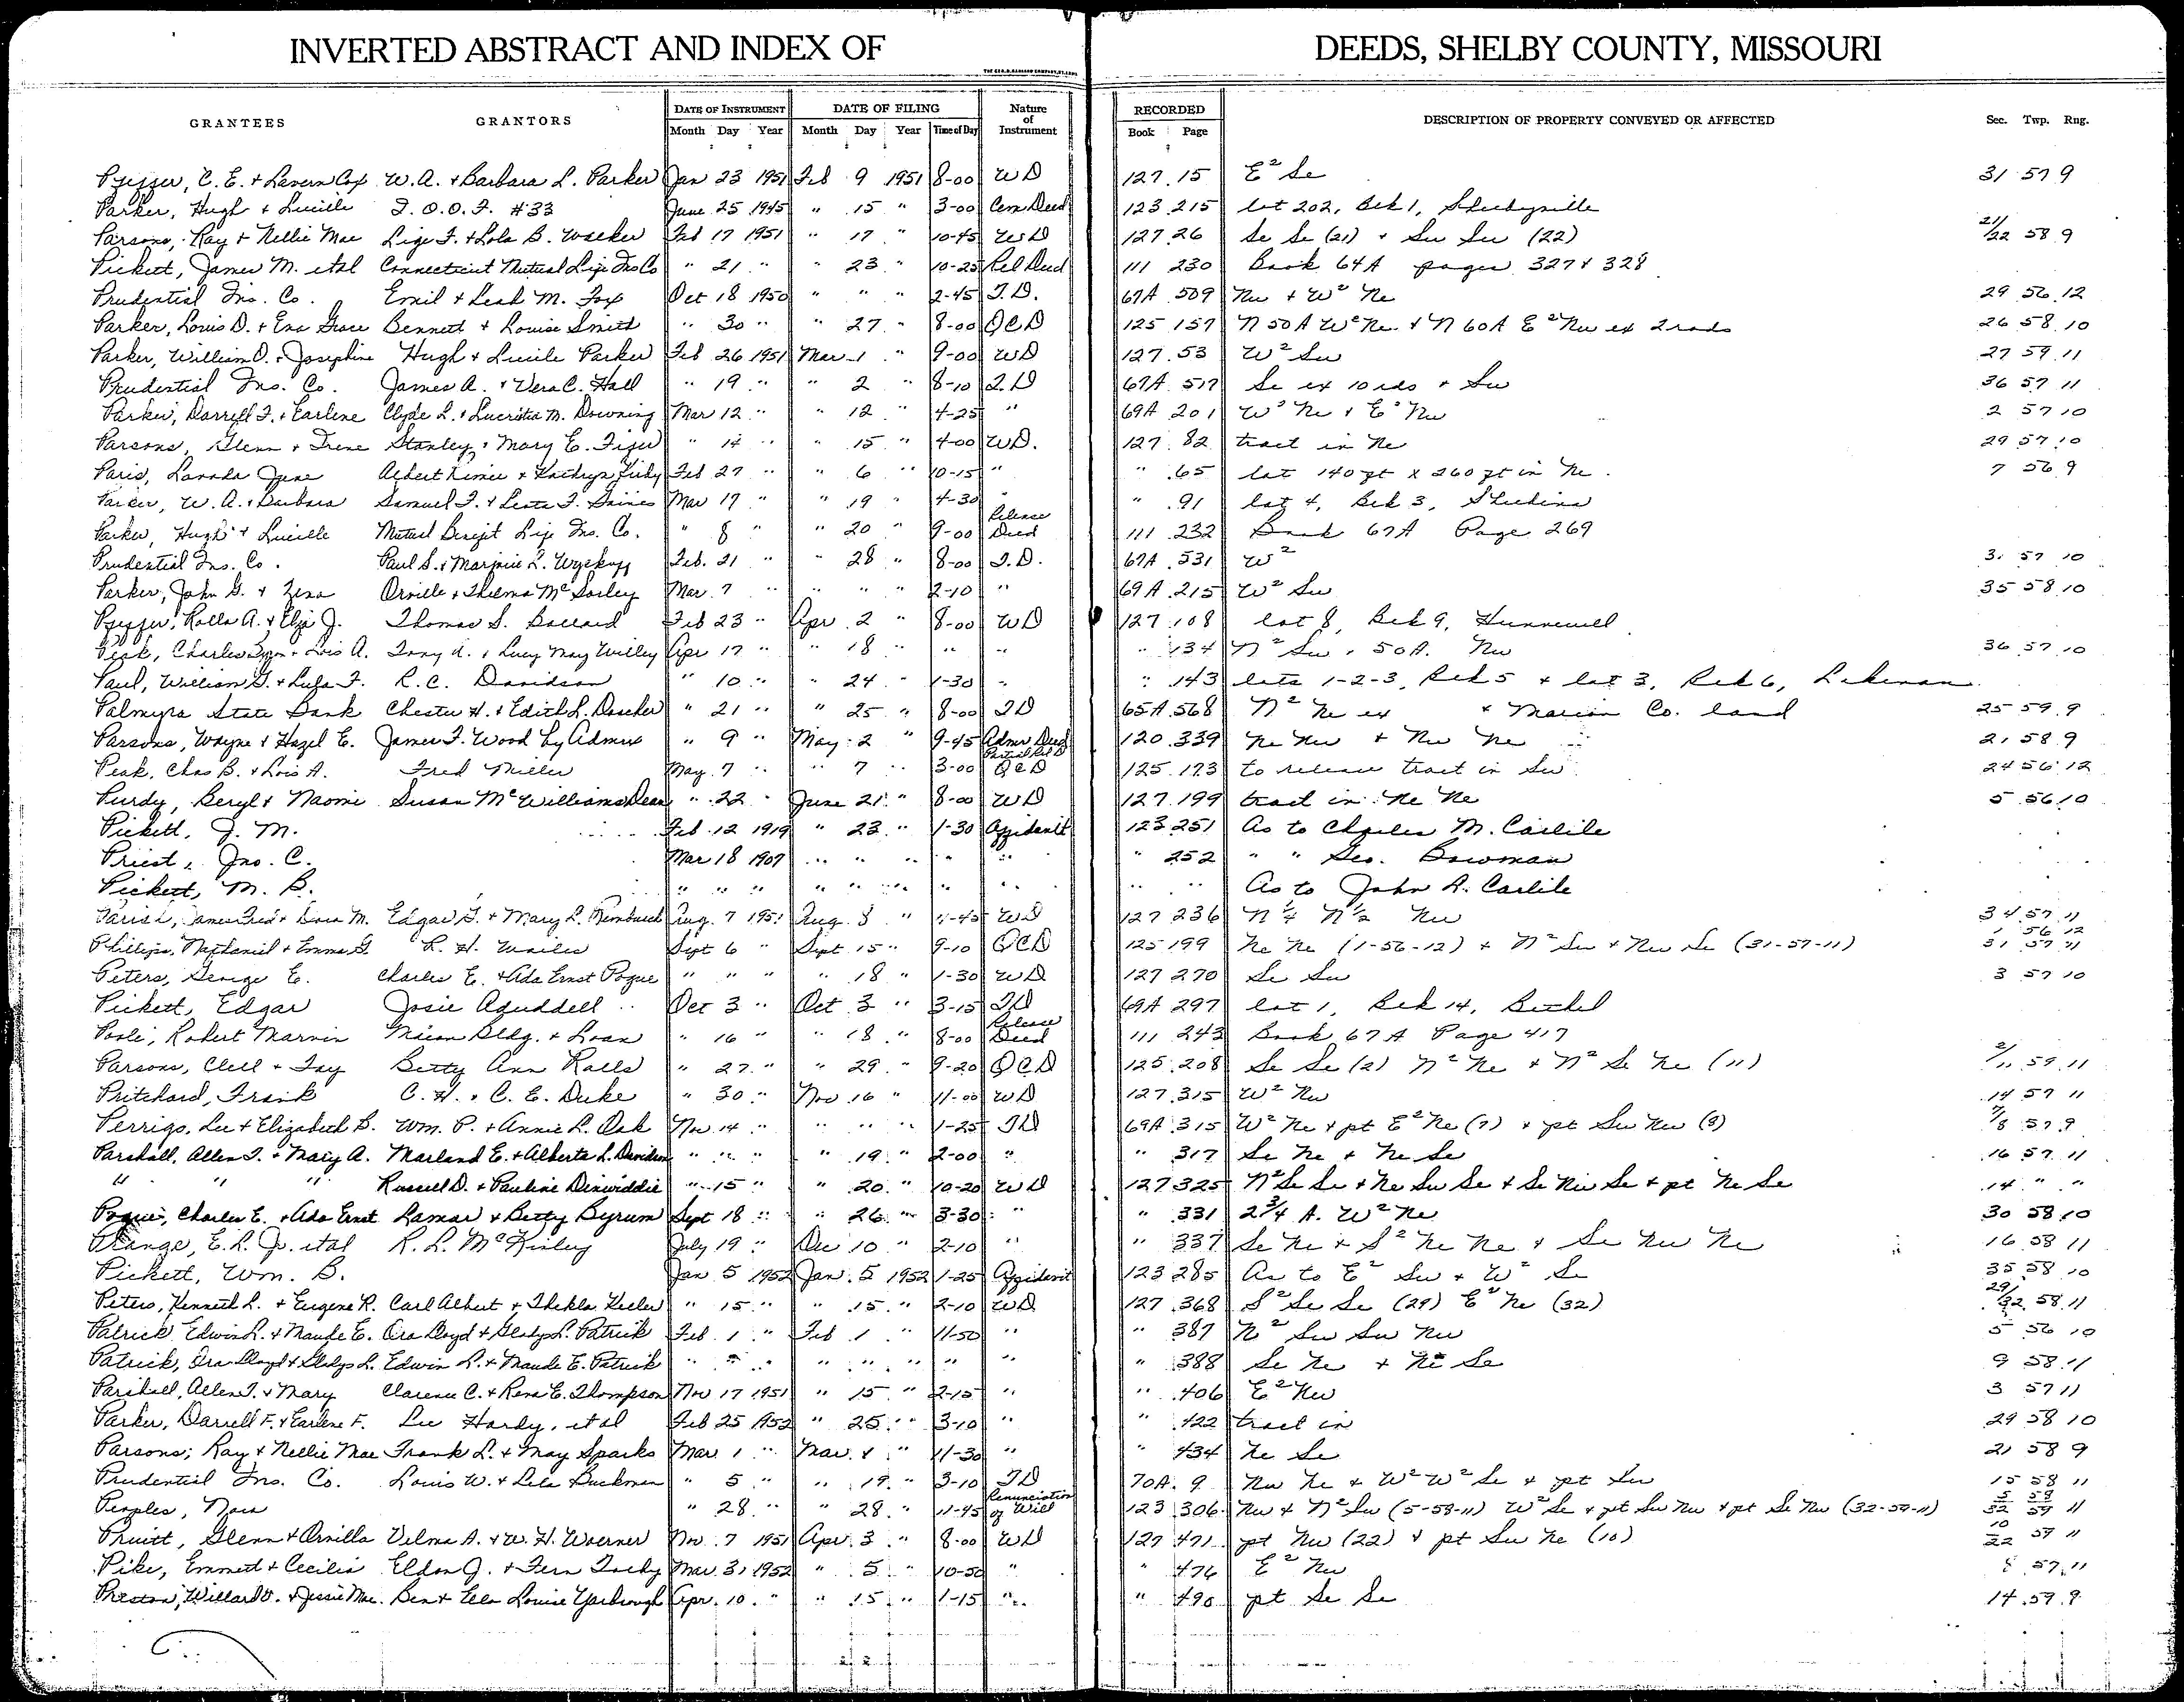 INVERTED ABSTRACT AND INDEX OF DEEDS, SHELBY COUNTY, MISSOURI
GRANTEES GRANTORS DATE OF INSTRUMENT DATE OF FILING Nature of Instrument RECORDED DESCRIPTION OF PROPERTY CONVEYED OR AFFECTED Sec. Twp. Rng.
Month Day Year Month Day Year Time of Day Book Page
C. E. + Lavern Cox W. A. + Barbara L. Parker Jan 23 1951 Feb 9 1951 8-00 WD 127 15 E² Se 31 57 9
Parker, Hugh + Lucille I. O. O. F. #33 June 25 1945 " 15 " 3-00 Cem Deed 123 215 lot 202, Blk 1, Shelbyville
Parsons, Ray + Nellie Mae Lige F. + Lola B. Walker Feb 17 1951 " 17 " 10-45 WD 127 26 Se Se (21) + Sw Sw (22) 21/22 58 9
Pickett, James M. etal Connecticut Mutual Life Ins Co " 21 " " 23 " 10-25 Rel Deed 111 230 Book 64A pages 327 + 328
Prudential Ins. Co. Emil + Leah M. Fox Oct 18 1950 " " " 2-45 T.D. 67A 509 Nw + W² Ne 29 56 12
Parker, Louis D. + Eva Grace Bennett + Louise Smith " 30 " " 27 " 8-00 QCD 125 157 N 50A W² Ne + N 60A E² Nw ex 2 rods 26 58 10
Parker, William O. + Josephine Hugh + Lucile Parker Feb 26 1951 Mar 1 " 9-00 WD 127 53 W² Sw 27 59 11
Prudential Ins. Co. James A. + Vera C. Hall " 19 " " 2 " 8-10 T.D 67A 517 Se ex 10 rds + Sw 36 57 11
Parker, Darrell F. + Earlene Clyde L. + Lucretia M. Downing Mar 12 " " 12 " 4-25 " 69A 201 W² Ne + E² Nw 2 57 10
Parsons, Glenn + Irene Stanley + Mary E. " 14 " " 15 " 4-00 WD. 127 82 tract in Ne 29 57 10
Paris, Lavada June Feb 27 " " 6 " 10-15 " " 65 lot 140 ft x 260 ft in Ne 7 56 9
Parker, W. A. + Barbara Samuel F. + Leota F. Gaines Mar 17 " " 19 " 4-30 " " 91 lot 4, Blk 3, Shelbina
Parker, Hugh + Lucille Mutual Benefit Life Ins. Co. " 8 " " 20 " 9-00 Release Deed 111 232 Book 67A Page 269
Prudential Ins. Co. Paul S. + Marjorie L. Wyckoff Feb. 21 " " 28 " 8-00 T.D. 67A 531 W² 31 57 10
Parker, John G. + Zena Orville + Thelma McSorley Mar. 7 " " " " 2-10 " 69A 215 W² Sw 35 58 10
Rolla A. + Eliza J. Thomas S. Ballard Feb 23 " Apr. 2 " 8-00 WD 127 108 lot 8, Blk 9, Hunnewell
Peak, Charles + Lois A. + Lucy May Willey Apr 17 " " 18 " " " " 134 N² Sw + 50A. Nw 36 57 10
Paul, William G. + Lula F. R. C. Davidson " 10 " " 24 " 1-30 " " 143 lots 1-2-3, Blk 5 + lot 3, Blk 6, Lakenan
Palmyra State Bank Chester H. + Edith L. " 21 " " 25 " 8-00 TD 65A 568 N² Ne ex + Marion Co. land 25 59 9
Parsons, Wayne + Hazel E. James F. Wood by Admrx " 9 " May 2 " 9-45 Admr Deed 120 339 Ne Nw + Nw Ne 21 58 9
Peak, Chas B. + Lois A. Fred Miller May 7 " " 7 " 3-00 Partial Rel QCD 125 173 to release tract in Sw 24 56 12
Purdy, Beryl + Naomi Susan McWilliams Dean " 22 " June 21 " 8-00 WD 127 199 tract in Ne Ne 5 56 10
Pickett, J. M. Feb 12 1919 " 23 " 1-30 Affidavit 123 251 As to Charles M. Carlile
Priest, Jno. C. Mar 18 1907 " " " " " " 252 " " Geo. Bowman
Pickett, M. B. " " " " " " " " " " As to John A. Carlile
James Fred + Dora M. Edgar G. + Mary L. Aug. 7 1951 Aug. 8 " WD 127 236 N¼ N½ Nw 34 57 11
Phillips, Nathaniel + Emma G. R. H. Wailes Sept 6 " Sept 15 " 9-10 QCD 125 199 Ne Ne (1-56-12) + N² Sw + Nw Se (31-57-11) 1 56 12 31 57 11
Peters, George E. Charles E. + Ada Ernst Pogue " " " " 18 " 1-30 WD 127 270 Se Sw 3 57 10
Pickett, Edgar Josie Aduddell Oct 3 " Oct 3 " 3-15 TD 69A 297 lot 1, Blk 14, Bethel
Poole, Robert Marvin Macon Bldg. + Loan " 16 " " 18 " 8-00 Release Deed 111 243 Book 67A Page 417
Parsons, Clell + Fay Betty Ann Ralls " 27 " " 29 " 9-20 QCD 125 208 Se Se (2) N² Ne + N² Se Ne (11) 2/11 59 11
Pritchard, Frank C. H. + C. E. Duke " 30 " Nov 16 " 11-00 WD 127 315 W² Nw 14 57 11
Perrigo, Lee + Elizabeth B. Wm. P. + Annie L. Oak Nov 14 " " " " 1-25 TD 69A 315 W² Ne + pt E² Ne (7) + pt Sw Nw (8) 7/8 57 9
Parshall, Allen T. + Mary A. Marland E. + Alberta L. Davidson " " " " 19 " 2-00 " " 317 Se Ne + Ne Se 16 57 11
" " " Russell D. + Pauline Dinwiddie " 15 " " 20 " 10-20 WD 127 325 N² Se Se + Ne Sw Se + Se Nw Se + pt Ne Se 14 " "
Pogue, Charles E. + Ada Ernst Lamar + Betty Byrum Sept 18 " " 26 " 3-30 " " 331 2¾ A. W² Ne 30 58 10
Prange, E. L. Jr. etal R. L. McKinley July 19 " Dec 10 " 2-10 " " 337 Se Ne + S² Ne Ne + Se Nw Ne 16 58 11
Pickett, Wm. B. Jan 5 1952 Jan. 5 1952 1-25 Affidavit 123 285 As to E² Sw + W² Se 35 58 10
Peters, Kenneth L. + Eugene R. Carl Albert + Thekla Keeler " 15 " " 15 " 2-10 WD 127 368 S² Se Se (29) E² Ne (32) 29/32 58 11
Patrick, Edwin L. + Maude E. Ora Lloyd + Gladys L. Patrick Feb. 1 " Feb 1 " 11-50 " " 387 N² Sw Sw Nw 5 56 10
Patrick, Ora Lloyd + Gladys L. Edwin L. + Maude E. Patrick " " " " " " " " " 388 Se Ne + Ne Se 9 58 11
Parshall, Allen T. + Mary Clarence C. + Rena E. Thompson Nov 17 1951 " 15 " 2-15 " " 406 E² Nw 3 57 11
Parker, Darrell F. + Earlene F. Lee Hardy, etal Feb 25 1952 " 25 " 3-10 " " 422 tract in 29 58 10
Parsons, Ray + Nellie Mae Frank L. + May Sparks Mar. 1 " Mar. 1 " 11-30 " " 434 Ne Se 21 58 9
Prudential Ins. Co. Louis W. + Lela Buckman " 5 " " 19 " 3-10 TD 70A 9 Nw Ne + W² W² Se + pt Sw 15 58 11
Peoples, Nora " 28 " " 28 " 11-45 Renunciation of Will 123 306 Nw + N² Sw (5-58-11) W² Se + pt Sw Nw + pt Se Nw (32-59-11) 5 58 32 59 11
Pruitt, Glenn + Orvilla Velma A. + W. H. Woerner Nov. 7 1951 Apr. 3 " 8-00 WD 127 471 pt Nw (22) + pt Sw Ne (10) 10 22 59 11
Pike, Emmett + Cecilia Eldon J. + Fern Mar. 31 1952 " 5 " 10-50 " " 476 E² Nw 57 11
Preston, Willard O. + Jessie Mae Ben + Ella Louise Yarbrough Apr. 10 " " 15 " 1-15 " " 490 pt Se Se 14 59 9